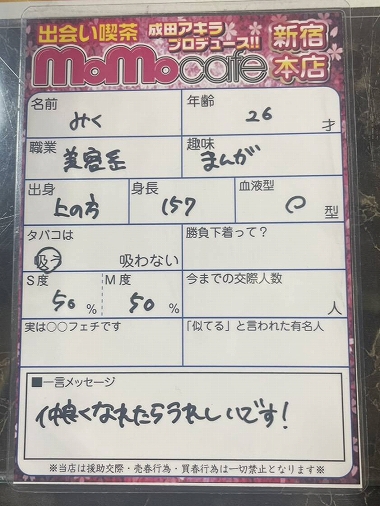 出会い喫茶 成田アキラ プロデュース!! 新宿本店
MoMocafe
名前 みく
年齢 26 才
職業 美容系
趣味 まんが
出身 上の方
身長 157
血液型 O 型
タバコは
吸う 吸わない
勝負下着って?
S度 50 % M度 50 %
今までの交際人数
人
実は○○フェチです
「似てる」と言われた有名人
■一言メッセージ
仲良くなれたらうれしいです!
※当店は援助交際・売春行為・買春行為は一切禁止となります※